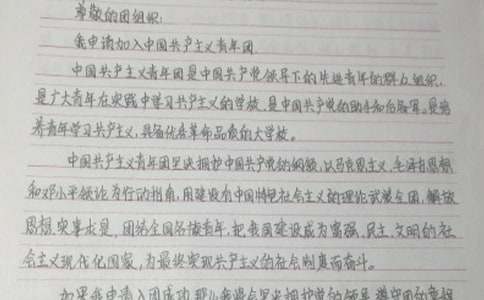 尊敬的团组织:
我申请加入中国共产主义青年团.
中国共产主义青年团是中国共产党领导下的先进青年的群众组织,
是广大青年在实践中学习共产主义的学校,是中国共产党的助手和后备军.是培
养青年学习共产主义,具备优秀革命品质的大学校。
中国共产主义青年团坚决拥护中国共产党的纲领,以马克思主义,毛泽东思想
和邓小平领论为行动指南,用建设有中国特色社会主义的理论武装全团,解放
思想,实事求是,团结全国各族青年,把我国建设成为富强,民主,文明的社
会主义现代化国家,为最终实现共产主义的社会制度而奋斗。
如果我申请入团成功,那么我将会坚决拥护党的领导,遵守团的章程